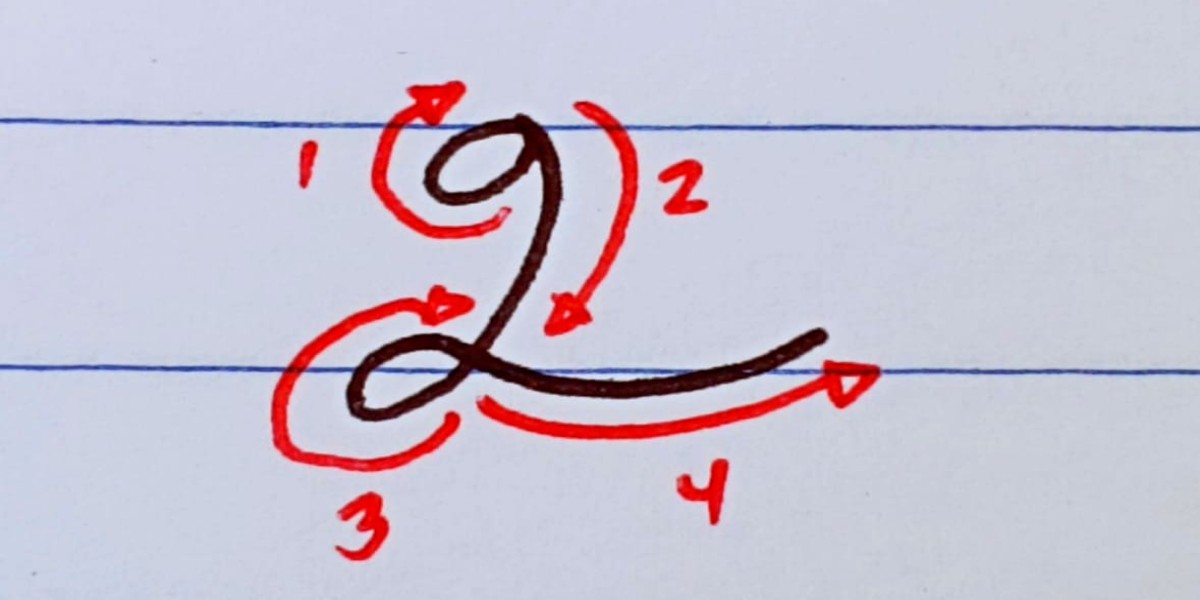 1 Q 2
3 4